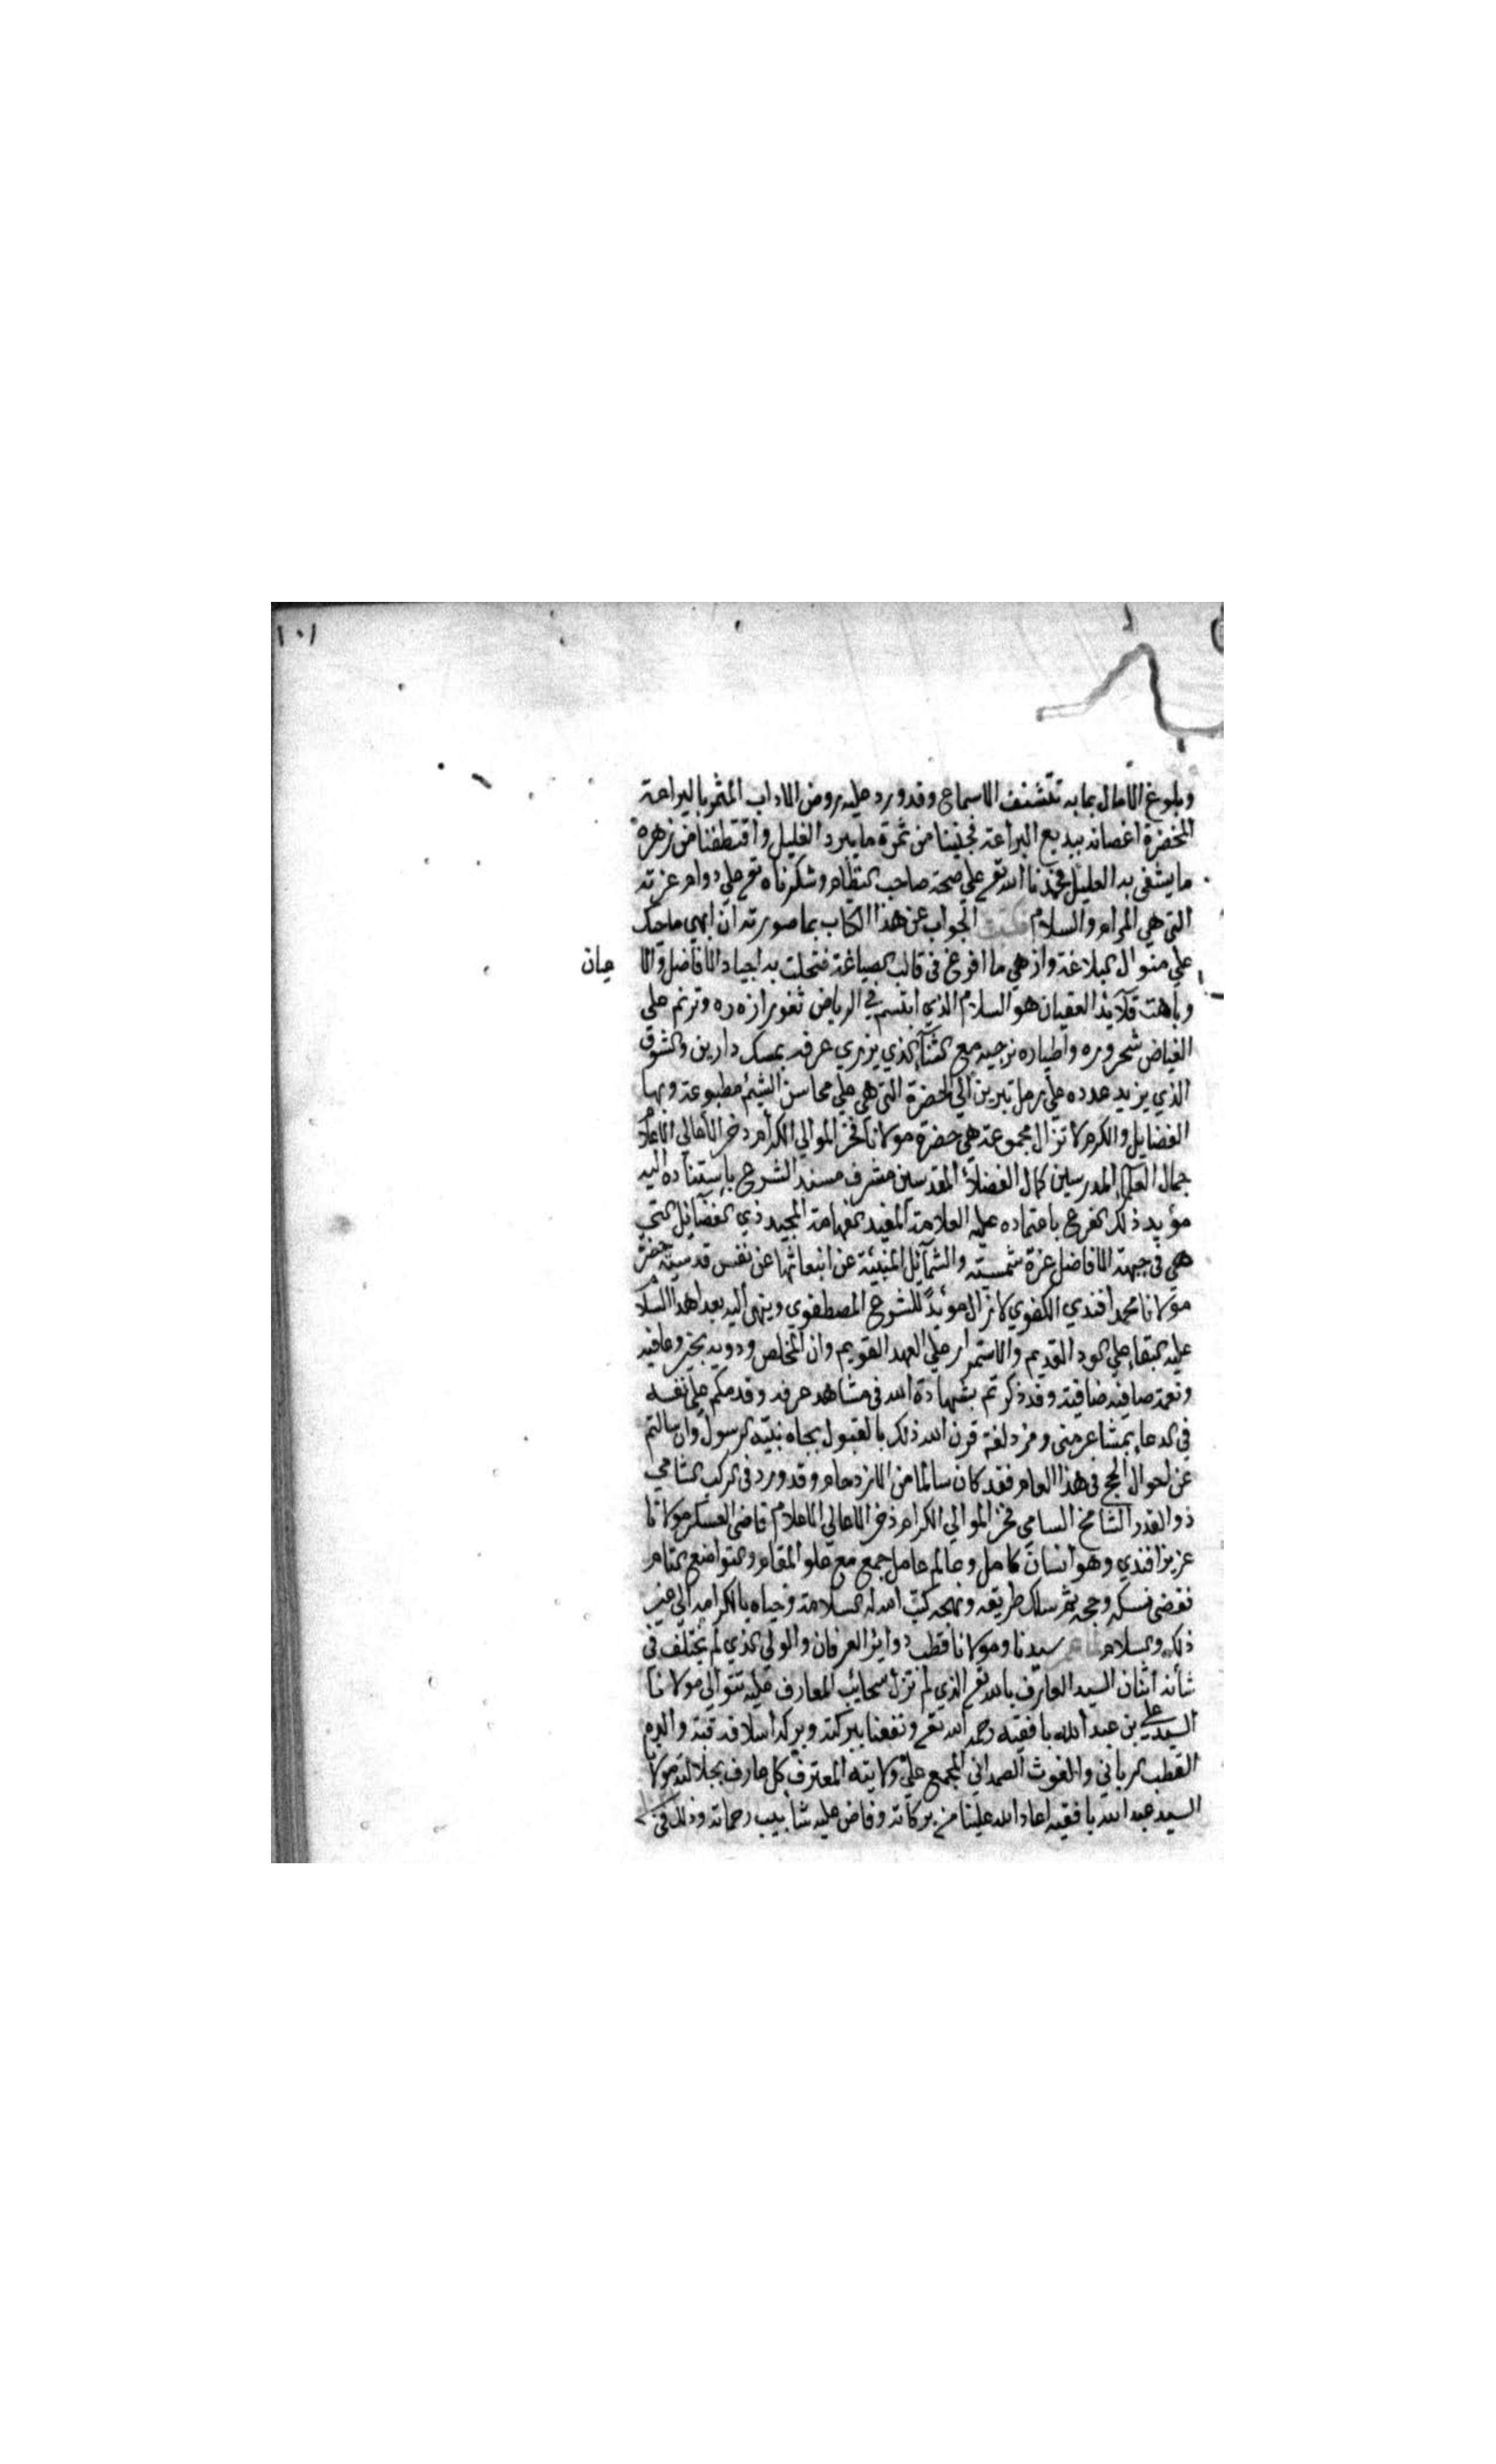 ١٠١
وبلوغ الآمال بما به تتشنف الاسماع وقد ورد عليه روض الاداب المثمر باليراعة
المخضرة اغصانه ببديع البراعة فجنينا من ثمرة ما يبرد الغليل واقتطفنا من زهره
ما يشفى به العليل فحمدنا الله تع علي صحة صاحب النظام وشكرناه تع علي دوام عزته
التي هي المرام والسلام فكتبت الجواب عن هذا الكتاب بما صورته ان ابهي ما حيك
علي منوال البلاغة وازهي ما افرغ في قالب الصياغة فتحلت به اجياد الافاضل والا عيان
وباهت قلآيد العقيان هو السلام الذي ابتسم في الرياض ثغور ازهره وترنم علي
الغياض شحروره واطياره نزجيه مع الثنآء الذي يزري عرفه بمسك دارين والشوق
الذي يزيد عدده علي رمل يبرين الي الحضرة التي هي علي محاسن الشيم مطبوعة وبها
الفضايل والكرم لا تزال مجموعة هي حضرة مولانا فخر الموالي الكرام ذخر الأهالي الاعلام
جمال العلمآء المدرسين كمال الفضلآء المقدسين مشرف مسند الشرع باستناده اليه
مؤيد ذلك الفرع باعتماده عليه العلامة المفيد الفهامة المجيد ذي الفضآئل التي
هي في جبهة الافاضل غرة شمسته والشمآئل المنبئة عن انبعاثها عن نفس قدسية حضرة
مولانا محمد افندي الكفوي لا زال مؤيداً للشرع المصطفوي وينهى اليه بعد اهدا السلام
عليه البقاء علي الود القديم والاستمرار علي العهد القويم وان المخلص وذويه بخير وعافيه
ونعمة صافيه ضافية وقد ذكرتم بشهادة الله في مشاهد عرفه وقدمكم علي نفسه
في الدعاء بمشاعر منى ومزدلفة قرن الله ذلك بالقبول بجاه نبيه الرسول وان سالتم
عن احوال الحج في هذا العام فقد كان سالما من الازدحام وقد ورد في الركب الشامي
ذو القدر الشامخ السامي فخر الموالي الكرام ذخر الاهالي الاعلام قاضي العسكر مولانا
عزيز افندي وهو انسان كامل وعالم عامل جمع مع علو المقام والتواضع التام
فقضى نسكه وحجه ثم سلك طريقه ونهجه كتب الله له السلامة وحياه بالكرامه الي غير
ذلك والسلام سيدنا ومولانا قطب دوائر العرفان والولي الذي لم يختلف في
شأنه اثنان السيد العارف بالله تع الذي لم تزل سحائب المعارف عليه تتوالي مولانا
السيد علي بن عبد الله بافقيه رحمه الله تع ونفعنا ببركته وبركة اسلافه قبة والده
القطب الرباني والغوث الصمداني المجمع علي ولايته المعترف كل عارف بجلالته مولانا
السيد عبد الله بافقيه اعاد الله علينا من بركاته وفاض عليه شأبيب رحماته وذلك في